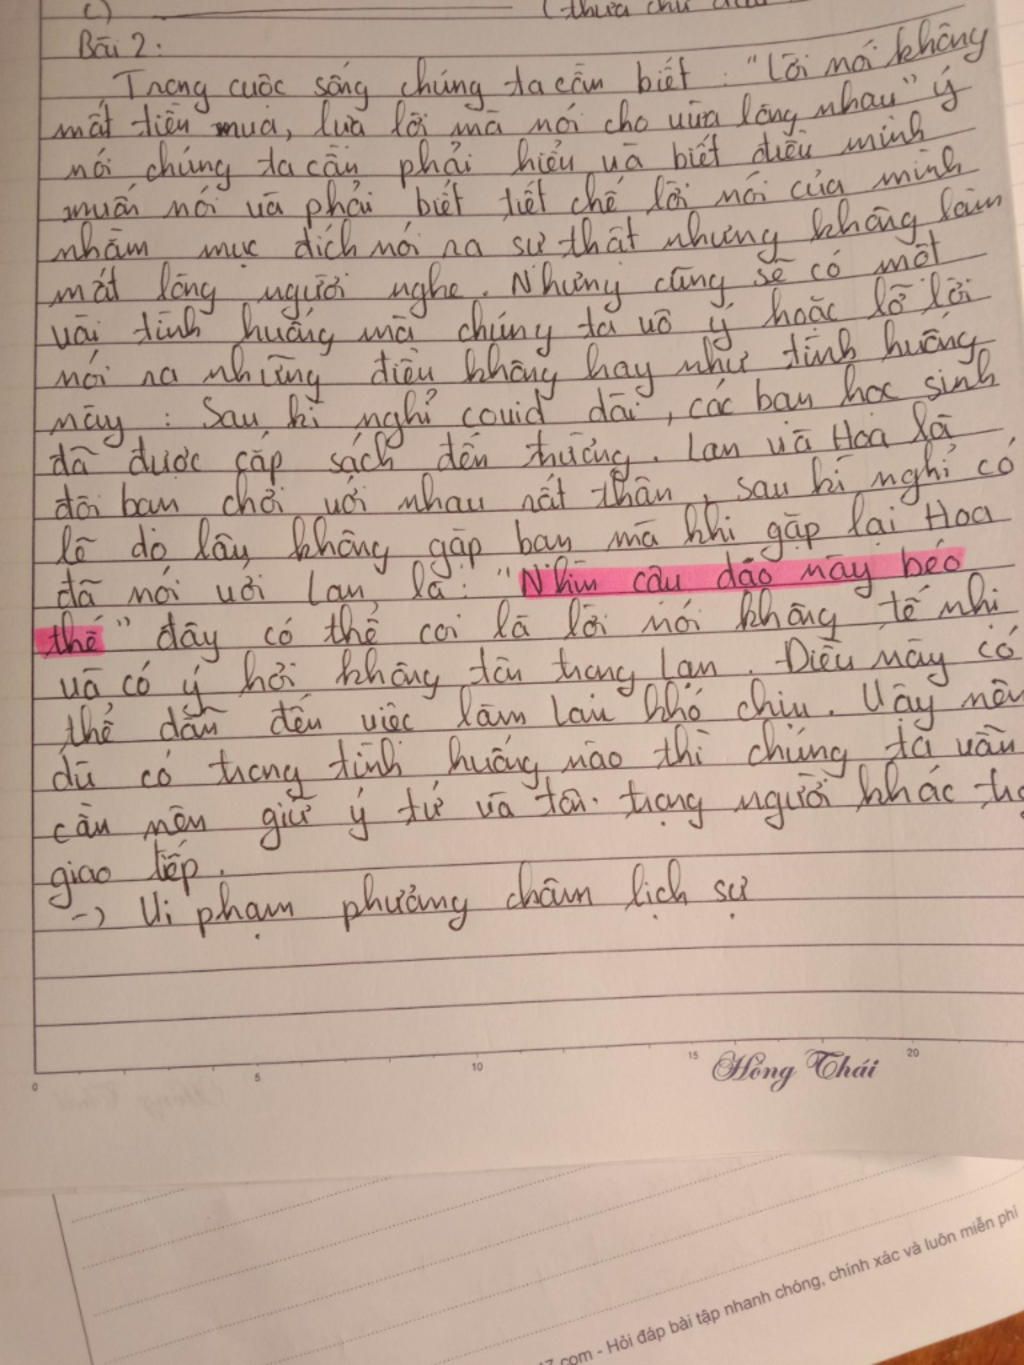 c)
(thưa chú
Bài 2:
Trong cuộc sống chúng ta cần biết : "Lời nói không
mất tiền mua, lựa lời mà nói cho vừa lòng nhau" ý
nói chúng ta cần phải hiểu và biết điều mình
muốn nói và phải biết tiết chế lời nói của mình
nhằm mục đích nói ra sự thật nhưng không làm
mất lòng người nghe. Nhưng cũng sẽ có một
vài tình huống mà chúng ta vô ý hoặc lỡ lời
nói ra những điều không hay như tình huống
này : Sau kì nghỉ covid dài, các bạn học sinh
đã được cặp sách đến trường. Lan và Hoa là
đôi bạn chơi với nhau rất thân, sau kì nghỉ có
lẽ do lâu không gặp bạn mà khi gặp lại Hoa
đã nói với Lan là: "Nhìn cậu dạo này béo
thế" đây có thể coi là lời nói không tế nhị
và có ý hơi không tôn trọng Lan. Điều này có
thể dẫn đến việc làm Lan khó chịu. Vậy nên
dù có trong tình huống nào thì chúng ta vẫn
cần nên giữ ý tứ và tôn trọng người khác
giao tiếp.
-> Vi phạm phương châm lịch sự
0 5 10 15 Hồng Thái 20
.com - Hỏi đáp bài tập nhanh chóng, chính xác và luôn miễn phí